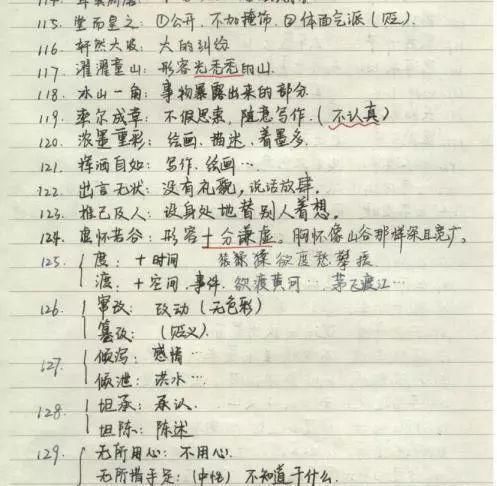 115. 堂而皇之：①公开，不加掩饰，②体面气派（贬）
116. 轩然大波：大的纠纷
117. 濯濯童山：形容光秃秃的山.
118. 冰山一角：事物暴露出来的部分.
119. 率尔成章：不假思索，随意写作.（不认真）
120. 浓墨重彩：绘画、描述，着墨多.
121. 挥洒自如：写作、绘画…
122. 出言无状：没有礼貌，说话放肆.
123. 推己及人：设身处地替别人着想.
124. 虚怀若谷：形容十分谦虚。胸怀像山谷那样深且宽广。
125. 度：+时间 猿猱欲度愁攀援
渡：+空间、事件. 欲渡黄河… 茅飞渡江…
126. 窜改：改动（无色彩）
篡改：（贬义）
127. 倾泻：感情…
倾泄：洪水…
128. 坦承：承认.
坦陈：陈述
129. 无所用心：不用心.
无所措手足：（中性）不知道干什么.